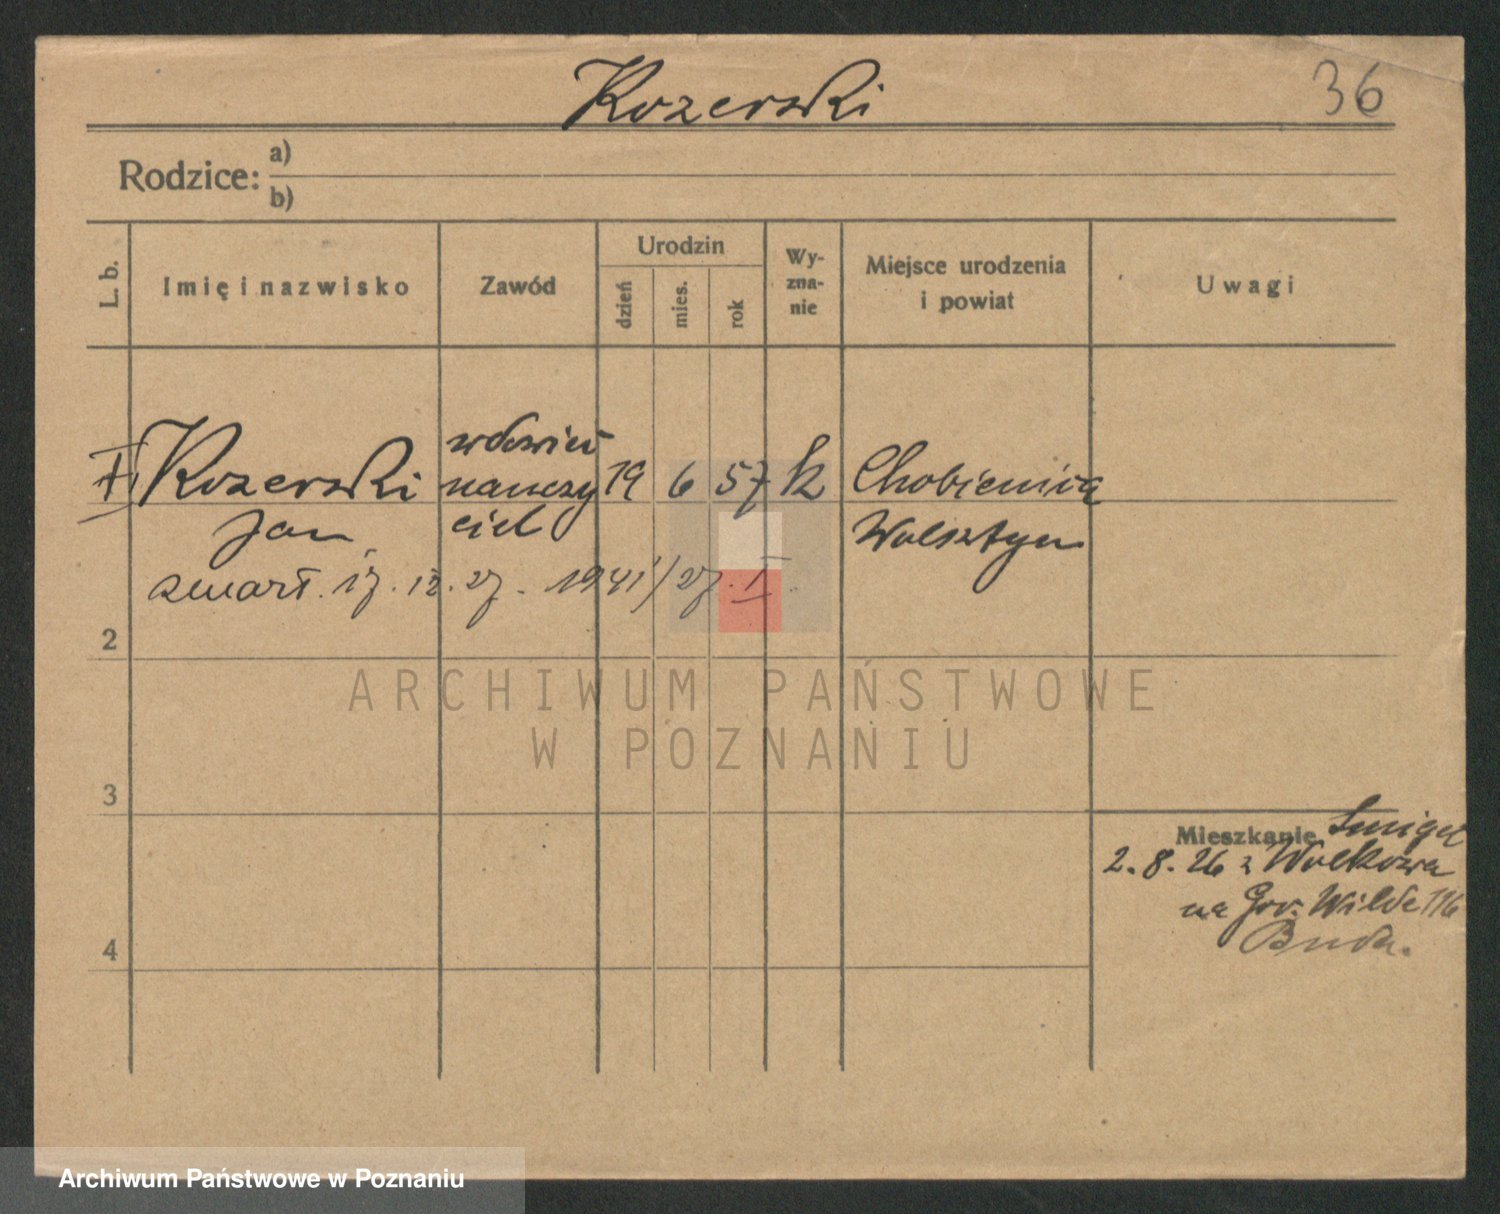 Kozerski
36
Rodzice: a)
b)
L. b.
Imię i nazwisko
Zawód
Urodzin
dzień
mies.
rok
Wy-
zna-
nie
Miejsce urodzenia
i powiat
Uwagi
Kozerski
Jan
wdowiec
nauczy
ciel
19 6 57 k
Chobienice
Wolsztyn
zmarł. 17. 12. 27. 1941/27. I.
2
3
4
Mieszkanie Śmigiel
2. 8. 26 z Wolkowa
na Gór. Wilda 116
Buda.
ARCHIWUM PAŃSTWOWE
W POZNANIU
Archiwum Państwowe w Poznaniu